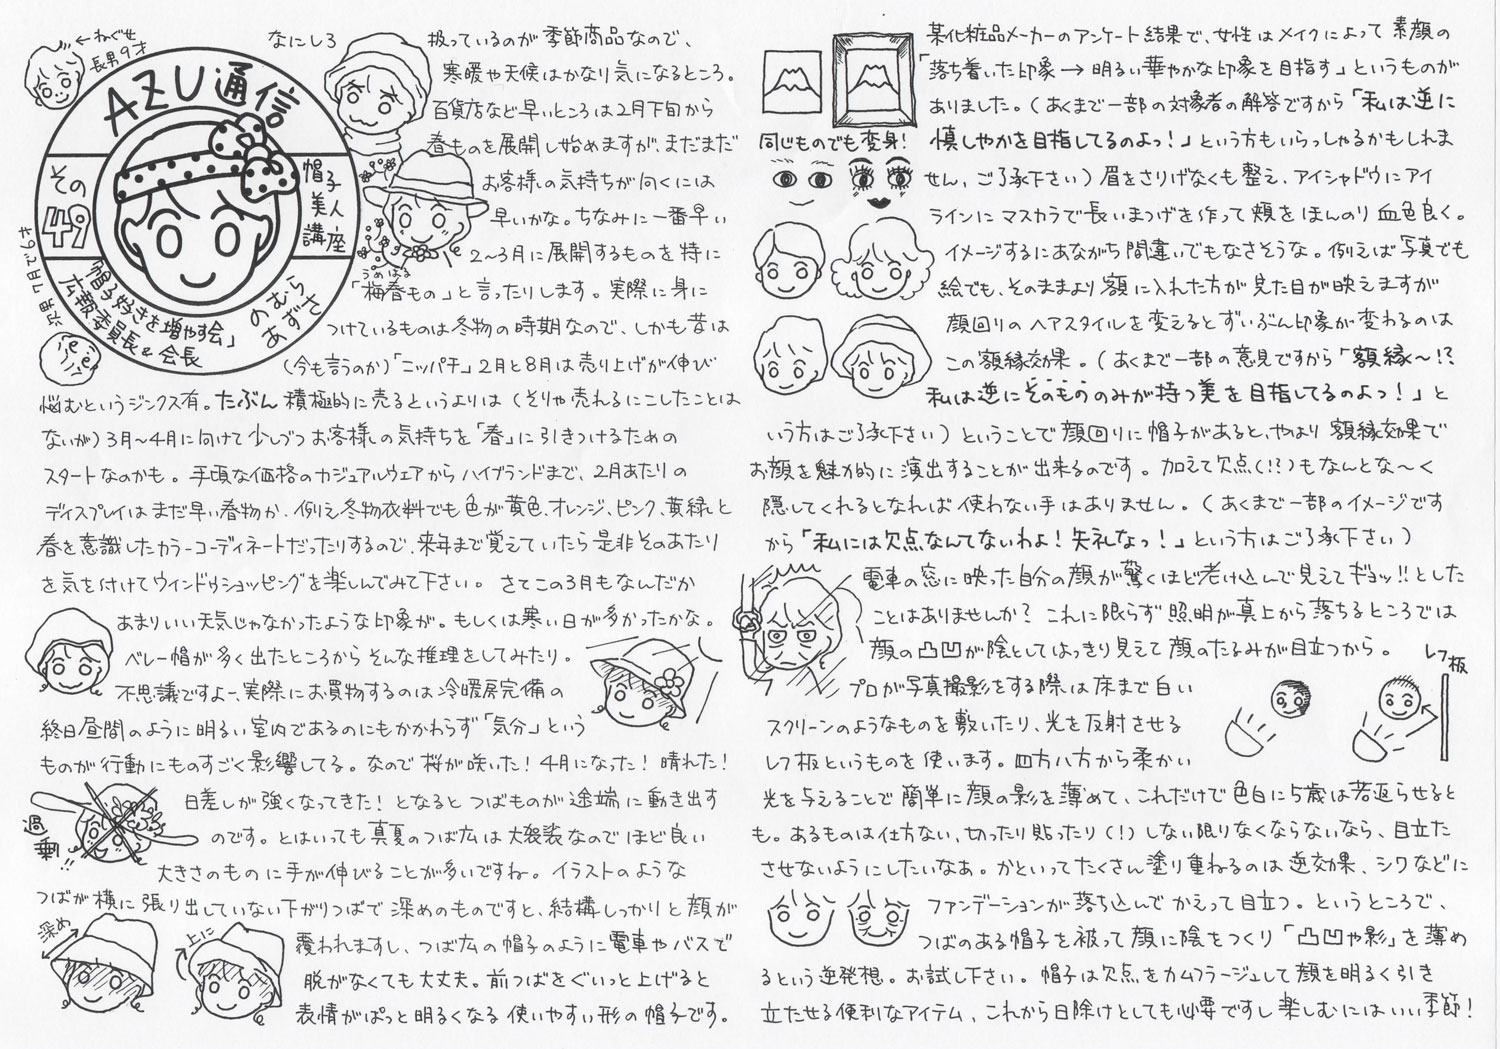 ←ねぐせ
長男9才
AZU通信
その
49
帽子
美人
講座
「帽子好きを増やす会」
広報委員長&会長
むらた
のあずさ
次男1才7ヶ月
なにしろ
扱っているのが季節商品なので、
寒暖や天候はかなり気になるところ。
百貨店など早いところは2月下旬から
春ものを展開し始めますが、まだまだ
お客様の気持ちが向くには
早いかな。ちなみに一番早い
2〜3月に展開するものを特に
うめはる
「梅春もの」と言ったりします。実際に身に
つけているものは冬物の時期なので、しかも昔は
(今も言うのか)「ニッパチ」2月と8月は売り上げが伸び
悩むというジンクス有。たぶん積極的に売るというよりは(そりゃ売れるにこしたことは
ないが)3月〜4月に向けて少しづつお客様の気持ちを「春」に引きつけるための
スタートなのかも。手頃な価格のカジュアルウェアからハイブランドまで、2月あたりの
ディスプレイはまだ早い春物か、例え冬物衣料でも色が黄色、オレンジ、ピンク、黄緑と
春を意識したカラーコーディネートだったりするので、来年まで覚えていたら是非そのあたり
を気を付けてウインドゥショッピングを楽しんでみて下さい。さてこの3月もなんだか
あまりいい天気じゃなかったような印象が。もしくは寒い日が多かったかな。
ベレー帽が多く出たところからそんな推理をしてみたり。
不思議ですよー、実際にお買物するのは冷暖房完備の
終日昼間のように明るい室内であるのにもかかわらず「気分」という
ものが行動にものすごく影響してる。なので桜が咲いた!4月になった!晴れた!
日差しが強くなってきた!となるとつばものが途端に動き出す
のです。とはいっても真夏のつば広は大袈裟なのでほど良い
過剰!!
大きさのものに手が伸びることが多いですね。イラストのような
つばが横に張り出していない下がりつばで深めのものですと、結構しっかりと顔が
深め
上に
覆われますし、つば広の帽子のように電車やバスで
脱がなくても大丈夫。前つばをぐいっと上げると
表情がぱっと明るくなる使いやすい形の帽子です。
某化粧品メーカーのアンケート結果で、女性はメイクによって素顔の
「落ち着いた印象→明るい華やかな印象を目指す」というものが
ありました。(あくまで一部の対象者の解答ですから「私は逆に
同じものでも変身!
慎しやかを目指してるのよっ!」という方もいらっしゃるかもしれま
せん、ご了承下さい)眉をさりげなくも整え、アイシャドウにアイ
ラインにマスカラで長いまつげを作って頬をほんのり血色良く。
イメージするにあながち間違いでもなさそうな。例えば写真でも
絵でも、そのままより額に入れた方が見た目が映えますが
顔回りのヘアスタイルを変えるとずいぶん印象が変わるのは
この額縁効果。(あくまで一部の意見ですから「額縁〜!?
私は逆にそのもののみが持つ美を目指してるのよっ!」と
いう方はご了承下さい)ということで顔回りに帽子があると、やはり額縁効果で
お顔を魅力的に演出することが出来るのです。加えて欠点(!?)もなんとな〜く
隠してくれるとなれば使わない手はありません。(あくまで一部のイメージです
から「私には欠点なんてないわよ!失礼なっ!」という方はご了承下さい)
電車の窓に映った自分の顔が驚くほど老け込んで見えてギョッ!!とした
ことはありませんか?これに限らず照明が真上から落ちるところでは
顔の凸凹が陰としてはっきり見えて顔のたるみが目立つから。
レフ板
プロが写真撮影をする際は床まで白い
スクリーンのようなものを敷いたり、光を反射させる
レフ板というものを使います。四方八方から柔かい
光を与えることで簡単に顔の影を薄めて、これだけで色白に5歳は若返らせると
も。あるものは仕方ない、切ったり貼ったり(!)しない限りなくならないなら、目立た
させないようにしたいなあ。かといってたくさん塗り重ねるのは逆効果、シワなどに
ファンデーションが落ち込んでかえって目立つ。というところで、
つばのある帽子を被って顔に陰をつくり「凸凹や影」を薄め
るという逆発想。お試し下さい。帽子は欠点をカムフラージュして顔を明るく引き
立たせる便利なアイテム、これから日除けとしても必要ですし楽しむにはいい季節!